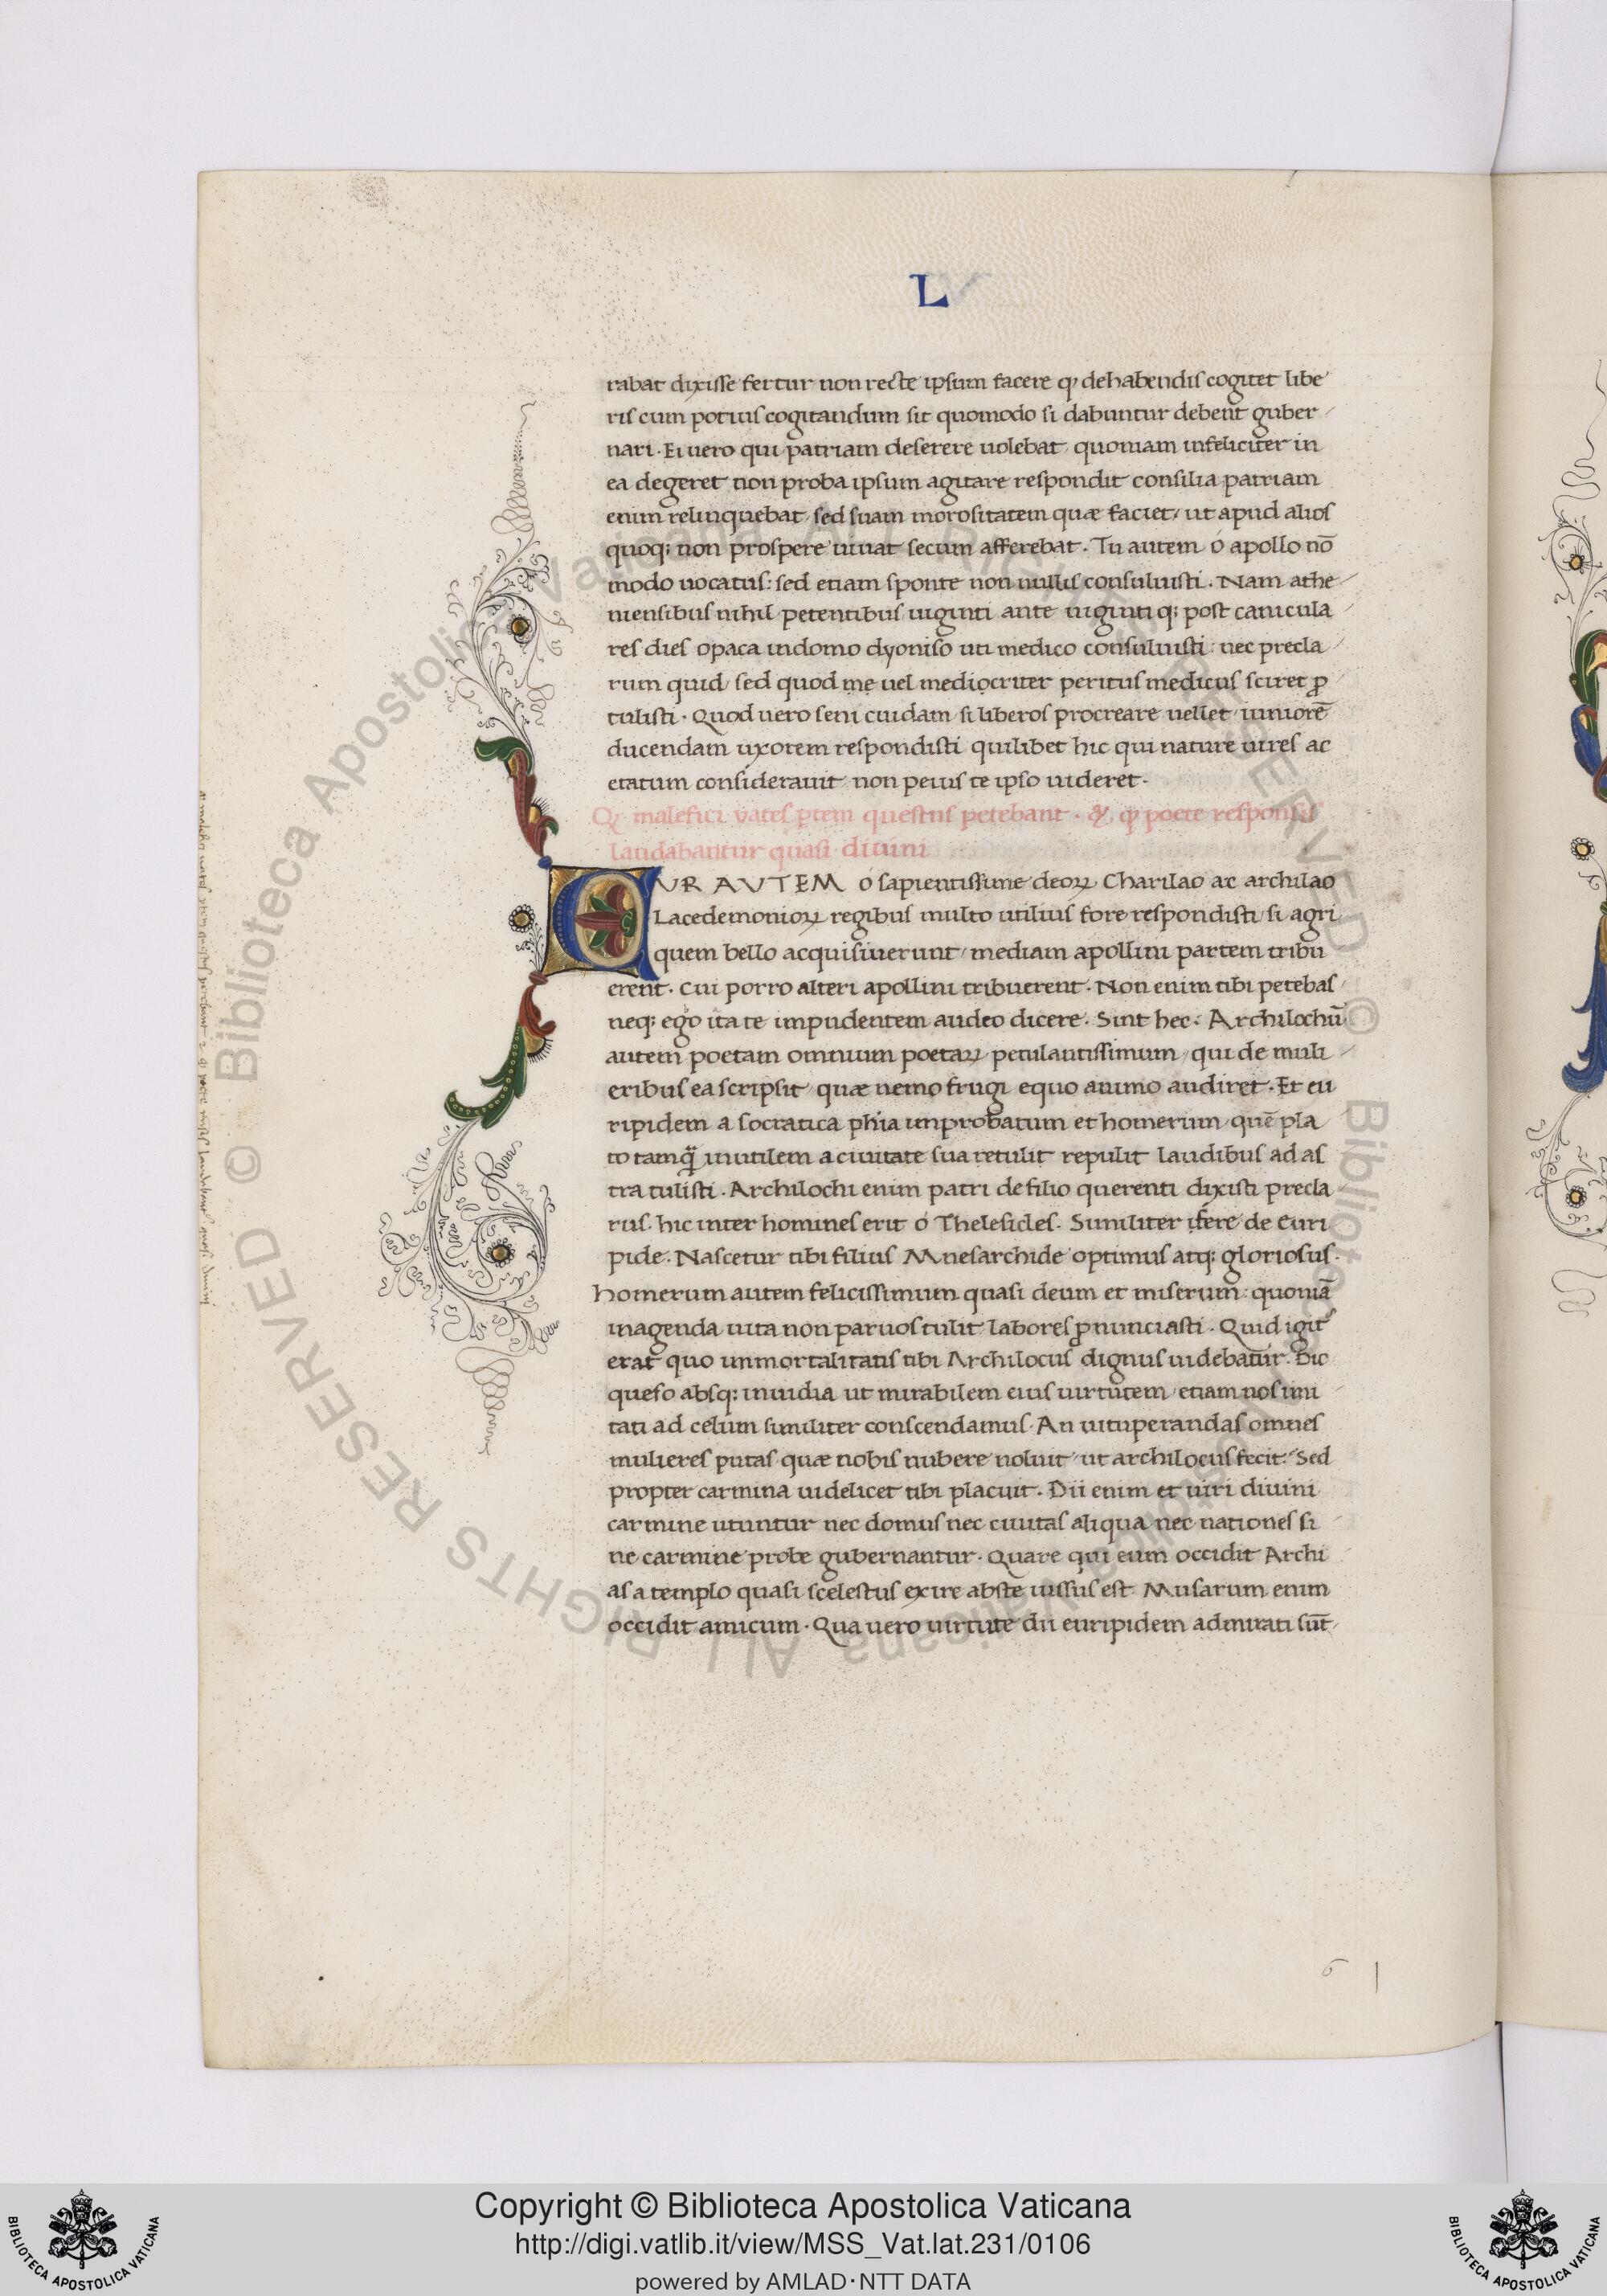 L
rabat dixisse fertur non recte ipsum facere ꝙ de habendis cogitet libe
ris cum potius cogitandum sit quomodo si dabuntur debent̄ guber
nari. Ei vero qui patriam deserere uolebat quoniam infeliciter in
ea degeret non proba ipsum agitare respondit consilia patriam
enim relinquebat sed suam morositatem quæ faciet, ut apud alios
quoq; non prospere uiuat secum afferebat. Tu autem o apollo nō
modo uocatus: sed etiam sponte non nullis consuluisti. Nam athe
niensibus nihil petentibus uiginti ante uiginti q; post canicula
res dies opaca in domo dyoniso uti medico consuluisti: nec precla
rum quid, sed quod me uel mediocriter peritus medicus sciret ꝓ
tulisti. Quod uero seni cuidam si liberos procreare uellet iuniorē
ducendam uxorem respondisti quilibet hic qui nature uires ac
etatum considerauit non peius te ipso uideret.
Qꝫ malefici vates ptem questus petebant. & ꝙ poete responsis
laudabantur quasi diuini
CUR AUTEM o sapientissime deoꝝ Charilao ac archilao
Lacedemonioꝝ regibus multo utilius fore respondisti si agri
quem bello acquisiuerunt mediam apollini partem tribu
erent. cui porro alteri apollini tribuerent. Non enim tibi petebas
neq; ego ita te impudentem audeo dicere. Sint hec. Archilochū
autem poetam omnium poetaꝝ petulantissimum, qui de muli
eribus ea scripsit quæ nemo frugi equo animo audiret. Et eu
ripidem a socratica phia improbatum et homerum quē pla
to tamq̄ inutilem a ciuitate sua retulit repulit laudibus ad as
tra tulisti. Archilochi enim patri de filio querenti dixisti precla
rus hic inter homines erit o Thelesicles. Similiter fere de Euri
pide. Nascetur tibi filius Mnesarchide optimus atq; gloriosus.
homerum autem felicissimum quasi deum et miserum: quoniā
in agenda uita non paruos tulit labores ꝓnunciasti. Quid igit
erat quo immortalitatis tibi Archilocus dignus uidebatur. Dic
queso absq; inuidia ut mirabilem eius uirtutem etiam nos imi
tati ad celum similiter conscendamus. An uituperandas omnes
mulieres putas quæ nobis nubere noluit ut archilocus fecit. Sed
propter carmina uidelicet tibi placuit. Dii enim et uiri diuini
carmine utuntur nec domus nec ciuitas aliqua nec nationes si
ne carmine probe gubernantur. Quare qui eum occidit Archi
as a templo quasi scelestus exire abs te iussus est Musarum enim
occidit amicum. Qua uero uirtute dii euripidem admirati sūt
© Biblioteca Apostolica Vaticana ALL RIGHTS RESERVED
Copyright © Biblioteca Apostolica Vaticana
http://digi.vatlib.it/view/MSS_Vat.lat.231/0106
powered by AMLAD·NTT DATA
BIBLIOTECA APOSTOLICA VATICANA
BIBLIOTECA APOSTOLICA VATICANA